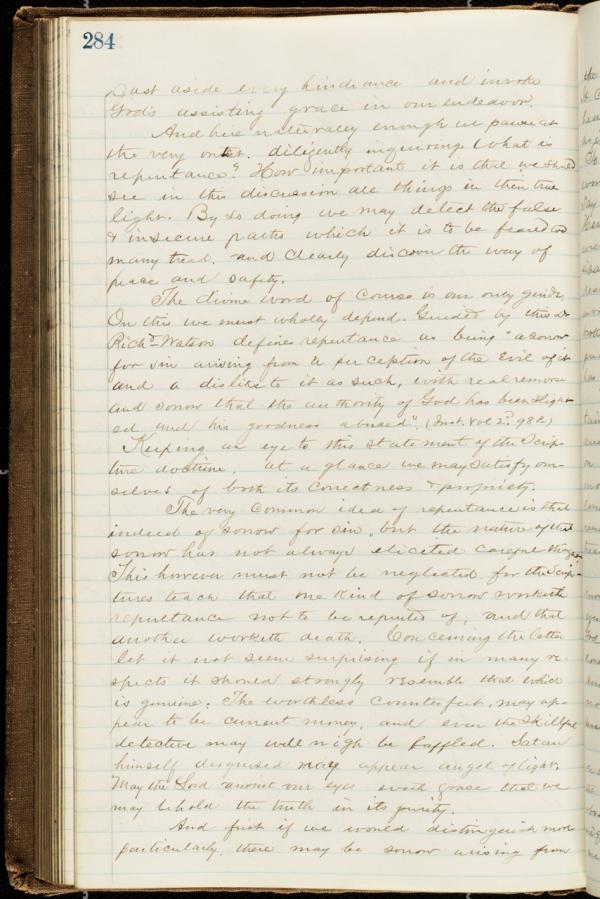 284
Cast aside every hindrance and invoke
God's assisting grace in our endeavor.
And here naturaley enough we pause at
the very outset. diligently inquiring. What is
repentance? How important it is that we should
see in this discussion all things in their true
light. By so doing we may detect the false
& insecure paths which it is to be feared so
many tread. and clearly discern the way of
peace and safety.
The divine word of course is our only guide.
On this we must wholly depend. Guided by this
Richd Watson defines repentance as being "a sorrow
for sin arising from a perception of the Evil of it
and a dislike to it as such, with real remorse
and sorrow that the authority of God has been slight-
ed and his goodness abused". (Inst. Vol 2d 982)
Keeping an eye to this statement of the Scrip-
ture doctrine, at a glance we may satisfy our-
selves of both its correctness & propriety.
The very common idea of repentance is that
indeed of sorrow for sin, but the nature of that
sorrow has not always elicited careful thought.
This however must not be neglected for the Scrip-
tures teach that one kind of sorrow worketh
repentance not to be repented of, and that
another worketh death. Concerning the latter
let it not seem surprising if in many re-
spects it should strongly resemble that which
is genuine. The worthless counterfeit, may ap-
pear to be current money, and even the skillful
detective may well nigh be baffled. Satan
himself disguised may appear angel of light.
May the Lord anoint our eyes with grace that we
may behold the truth in its purity.
And first if we would distinguish more
particularly, there may be sorrow arising from